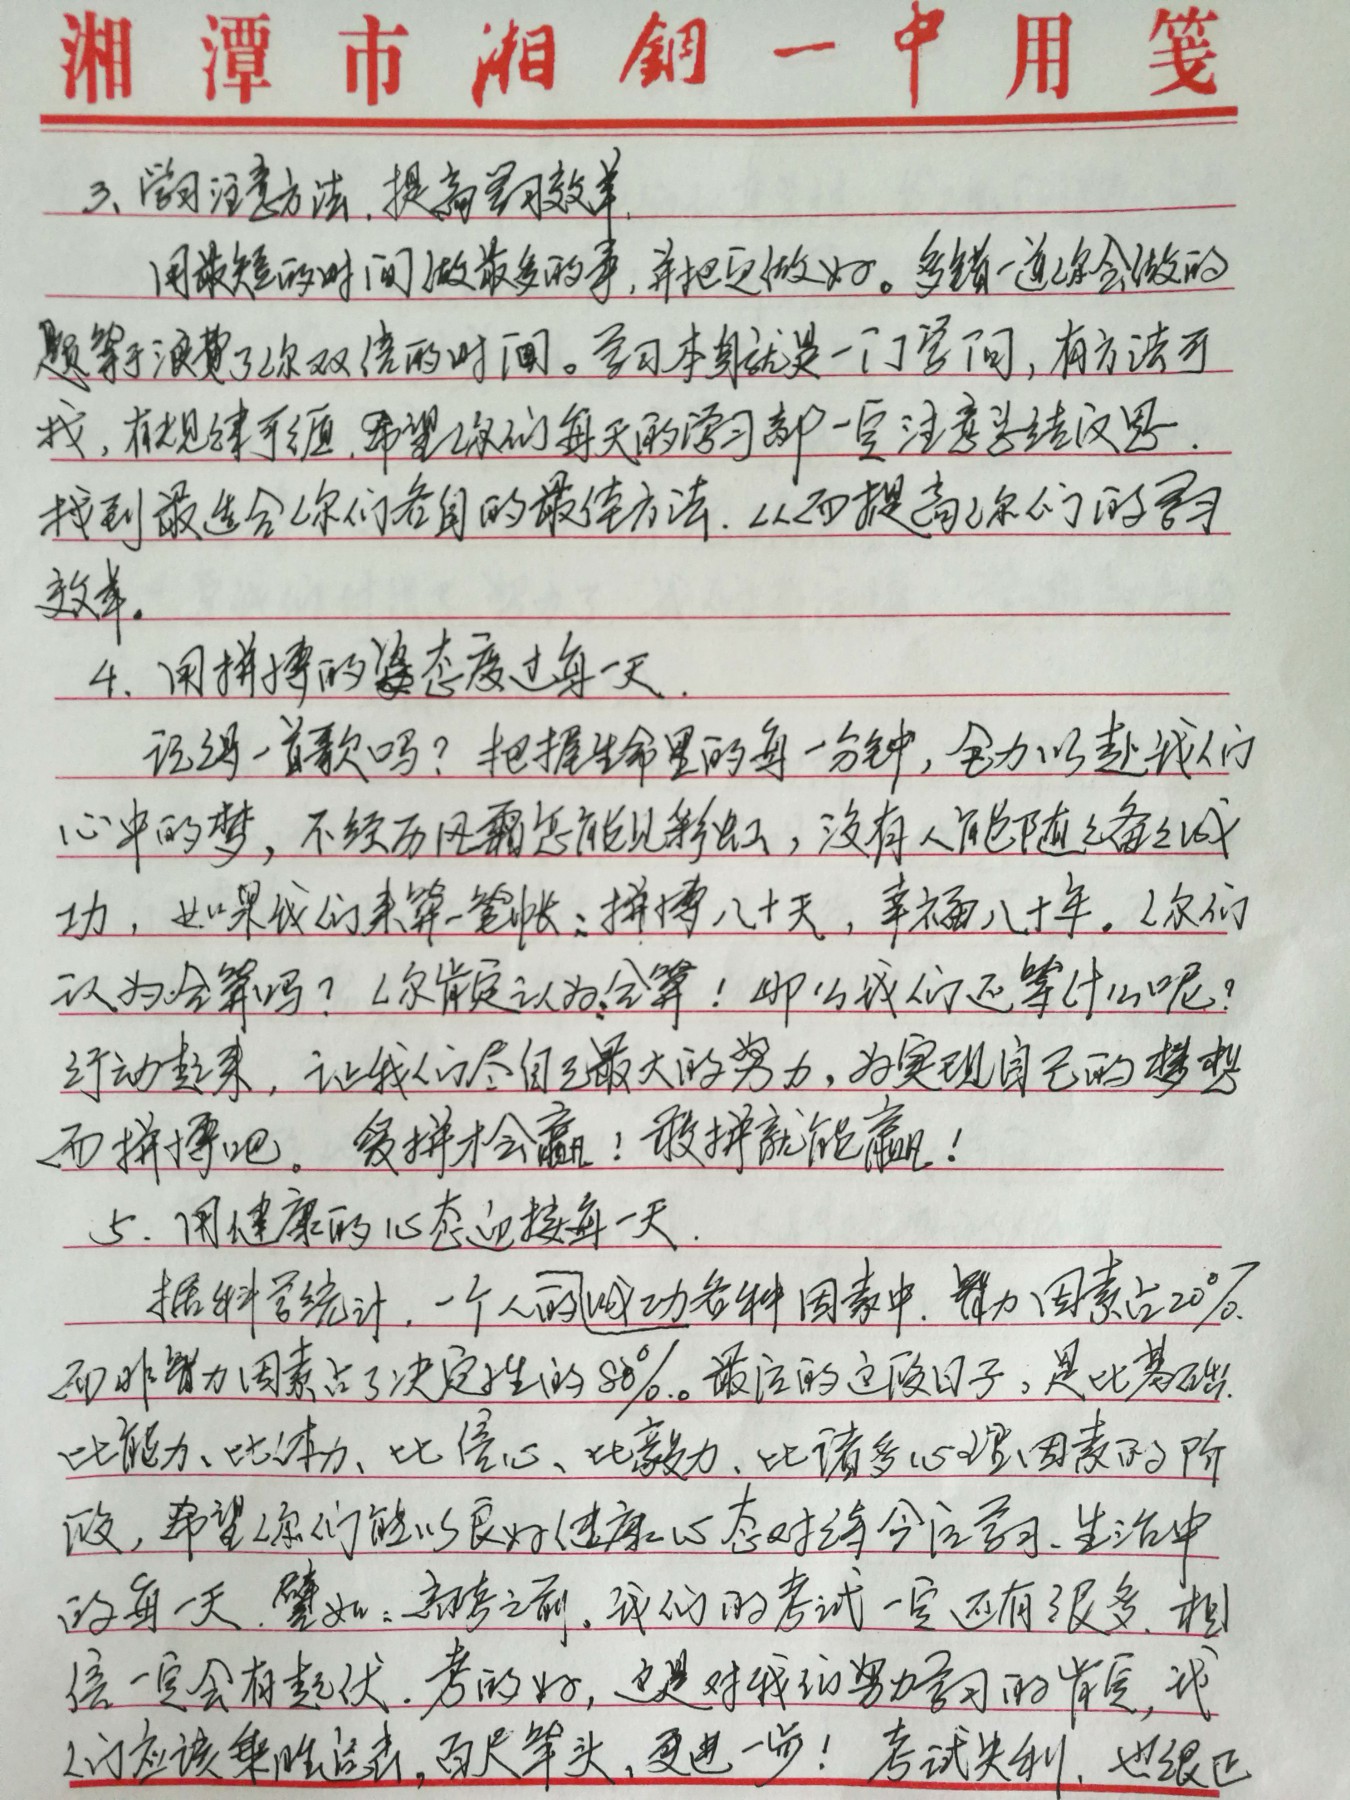 湘潭市湘钢一中用笺
3、学习注意方法，提高学习效率.
用最短的时间做最多的事，并把它做好。多错一道你会做的
题等于浪费了你双倍的时间。学习本身就是一门学问，有方法可
找，有规律可循.希望你们每天的学习都一定注意总结反思.
找到最适合你们各自的最佳方法.从而提高你们的学习
效率。
4.用拼搏的姿态度过每一天.
记得一首歌吗？把握生命里的每一分钟，全力以赴我们
心中的梦，不经历风霜怎能见彩虹，没有人能随随便便成
功，如果我们来算一笔帐：拼搏八十天，幸福八十年。你们
认为合算吗？你肯定认为合算！那么我们还等什么呢？
行动起来，让我们尽自己最大的努力，为实现自己的梦想
而拼搏吧。爱拼才会赢！敢拼就能赢！
5.用健康的心态迎接每一天.
据科学统计，一个人的成功各种因素中.智力因素占20%.
而非智力因素占了决定性的80%。最后的这段日子，是比基础.
比能力、比体力、比信心、比毅力、比诸多心理因素的阶
段，希望你们能以良好健康心态对待今后学习、生活中
的每一天.譬如：高考之前。我们的考试一定还有很多.相
信一定会有起伏.考的好，这是对我们努力学习的肯定，我
们应该乘胜追击，百尺竿头，更进一步！考试失利、也很正